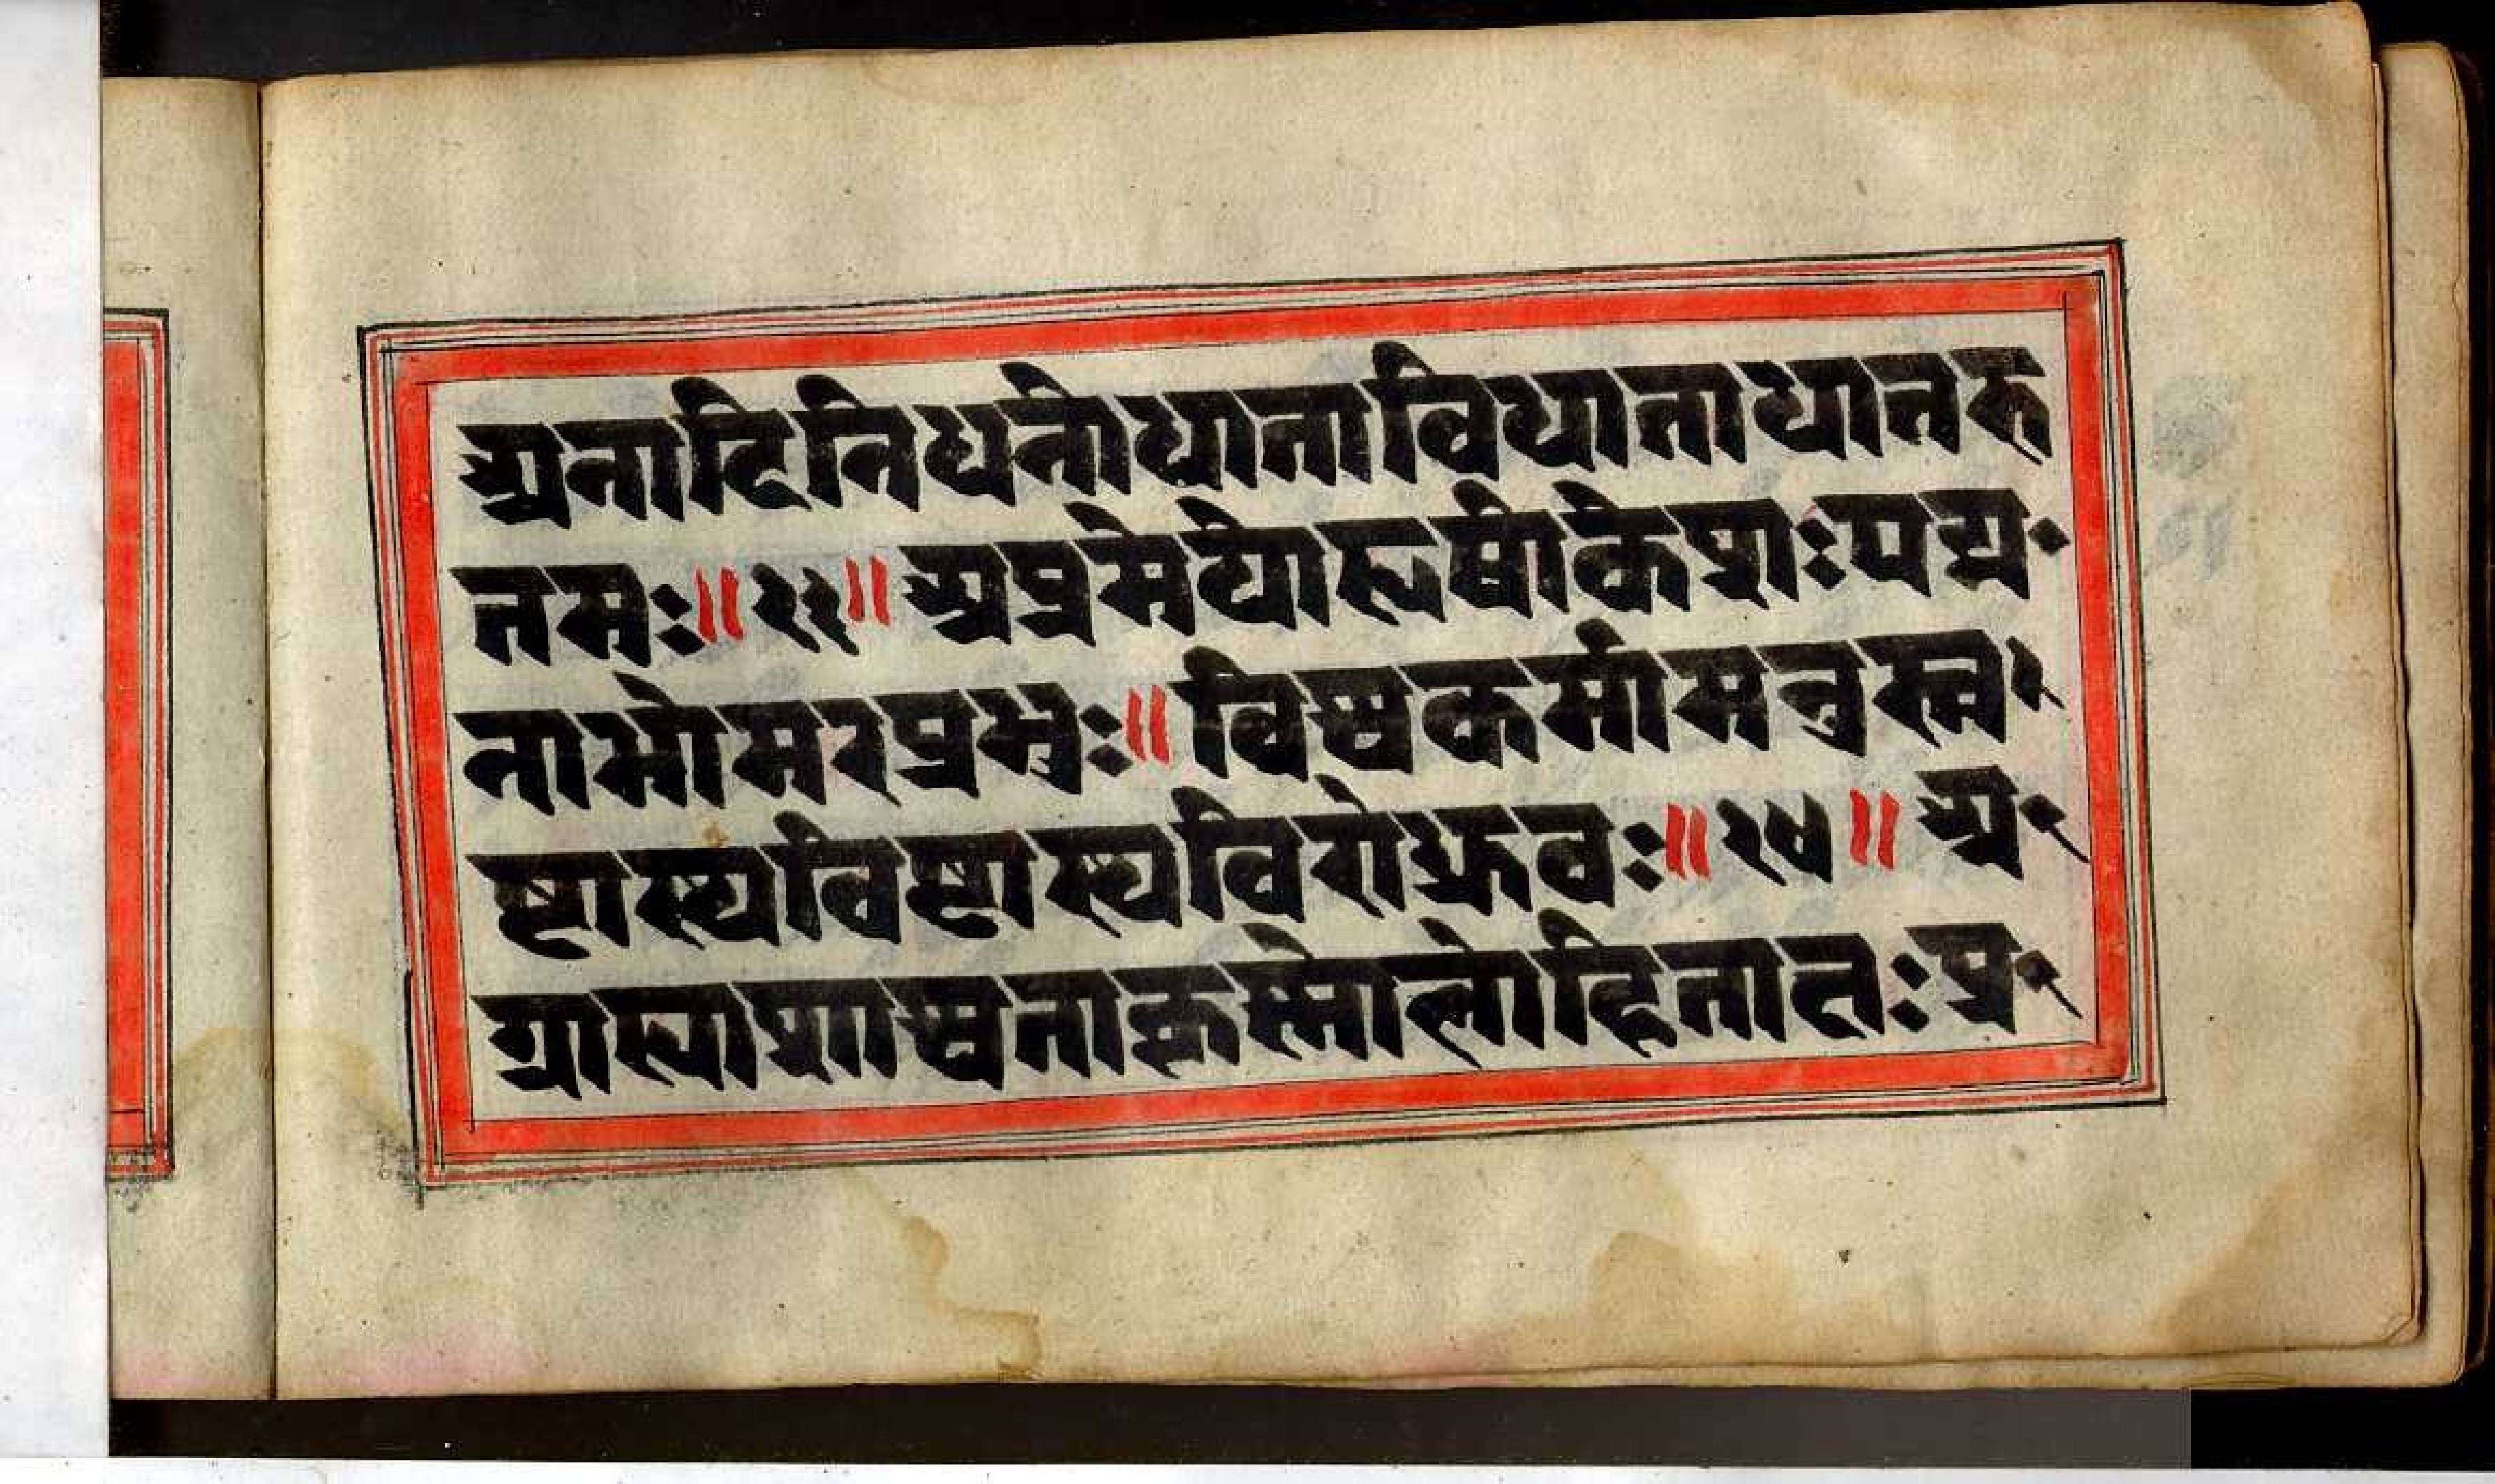 अनादिनिधनोधाताविधाताधातरु
त्तमः॥२३॥अप्रमेयोहृषीकेशःपद्म
नाभोमरप्रभुः॥विश्वकर्मामनुस्त्व
ष्टास्थविष्टास्थविरोध्रुवः॥२४॥अ
ग्रास्याशाश्वताकृष्णोलोहिताक्षःप्र